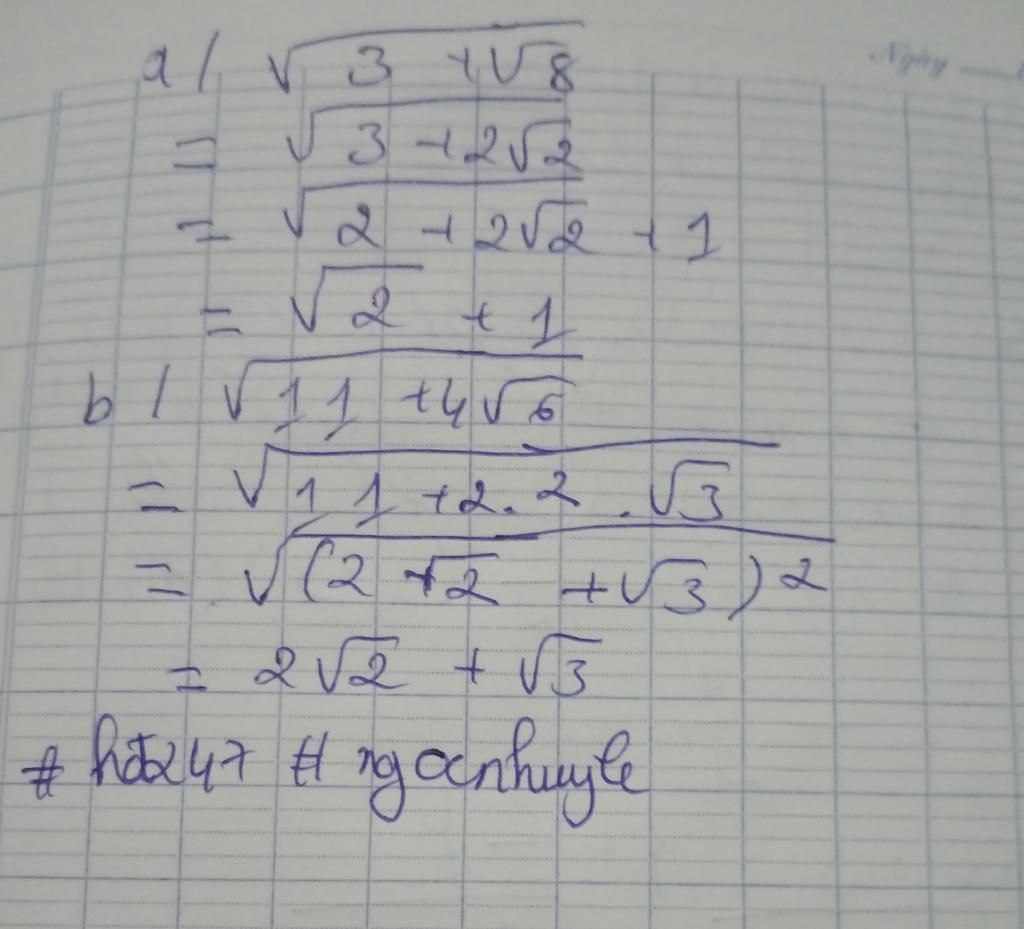 Ngày
a/ √(3 + √8)
= √(3 + 2√2)
= √(2 + 2√2) + 1
= √2 + 1
b/ √(11 + 4√6)
= √(11 + 2. 2 . √3)
= √((2√2 + √3)2)
= 2√2 + √3
# hđ247 # ngocnhuyle